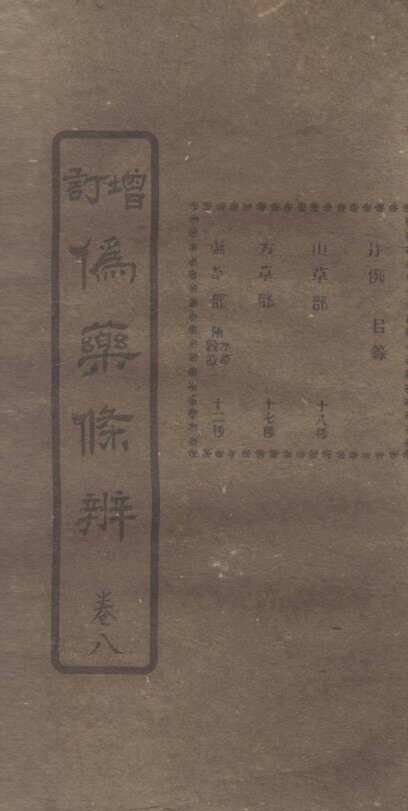 序例 目錄
山草部 十八種
芳草部 十七種
隰草部 十二種
增訂
僞藥條辨
卷八